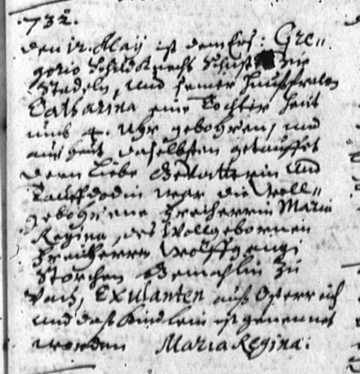 732.
den 12. Maÿ ist dem Ers: Gre-
gorio Schildknecht Schust zu
Stadeln, und seiner Haußfrauen
Catharina eine Tochter heut
umb 4. Uhr gebohren, und
auch heut daselbsten getauffet
deren liebe Gevatterin und
Tauffdodin war die Woll-
gebohrne Freÿherrin Maria
Regina, des Wollgebornen
Freiherrn Wolffgangi
Gemahlin zu
Exulanten auß Österreich
und das Kindlein ist genennet
worden Maria Regina.